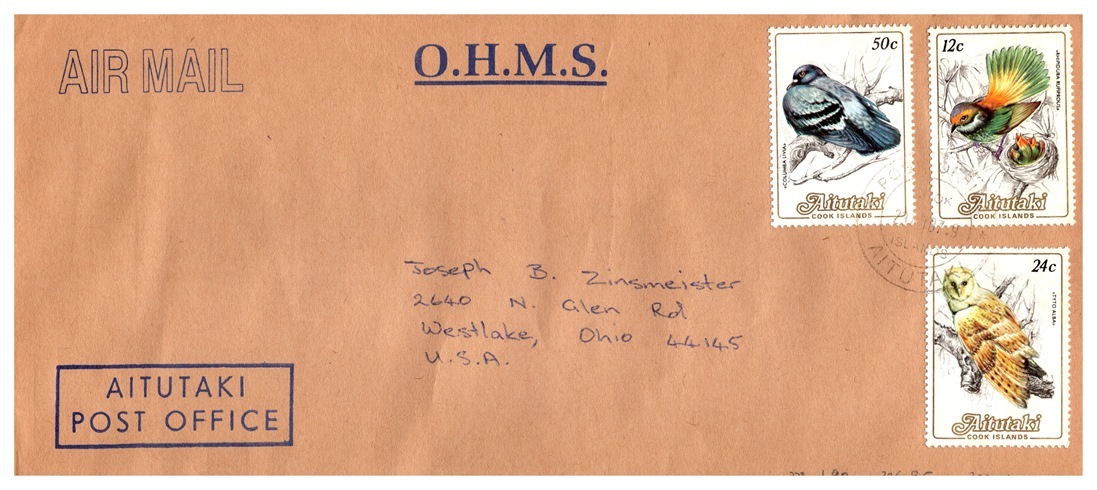 AIR MAIL
O.H.M.S.
50c
«COLUMBA LIVIA»
Aitutaki
COOK ISLANDS
12c
«RHIPIDURA RUFIFRONS»
Aitutaki
COOK ISLANDS
24c
«TYTO ALBA»
Aitutaki
COOK ISLANDS
ISLANDS
AITUTAKI
Joseph B. Zinsmeister
2640 N. Glen Rd
Westlake, Ohio 44145
U.S.A.
AITUTAKI
POST OFFICE